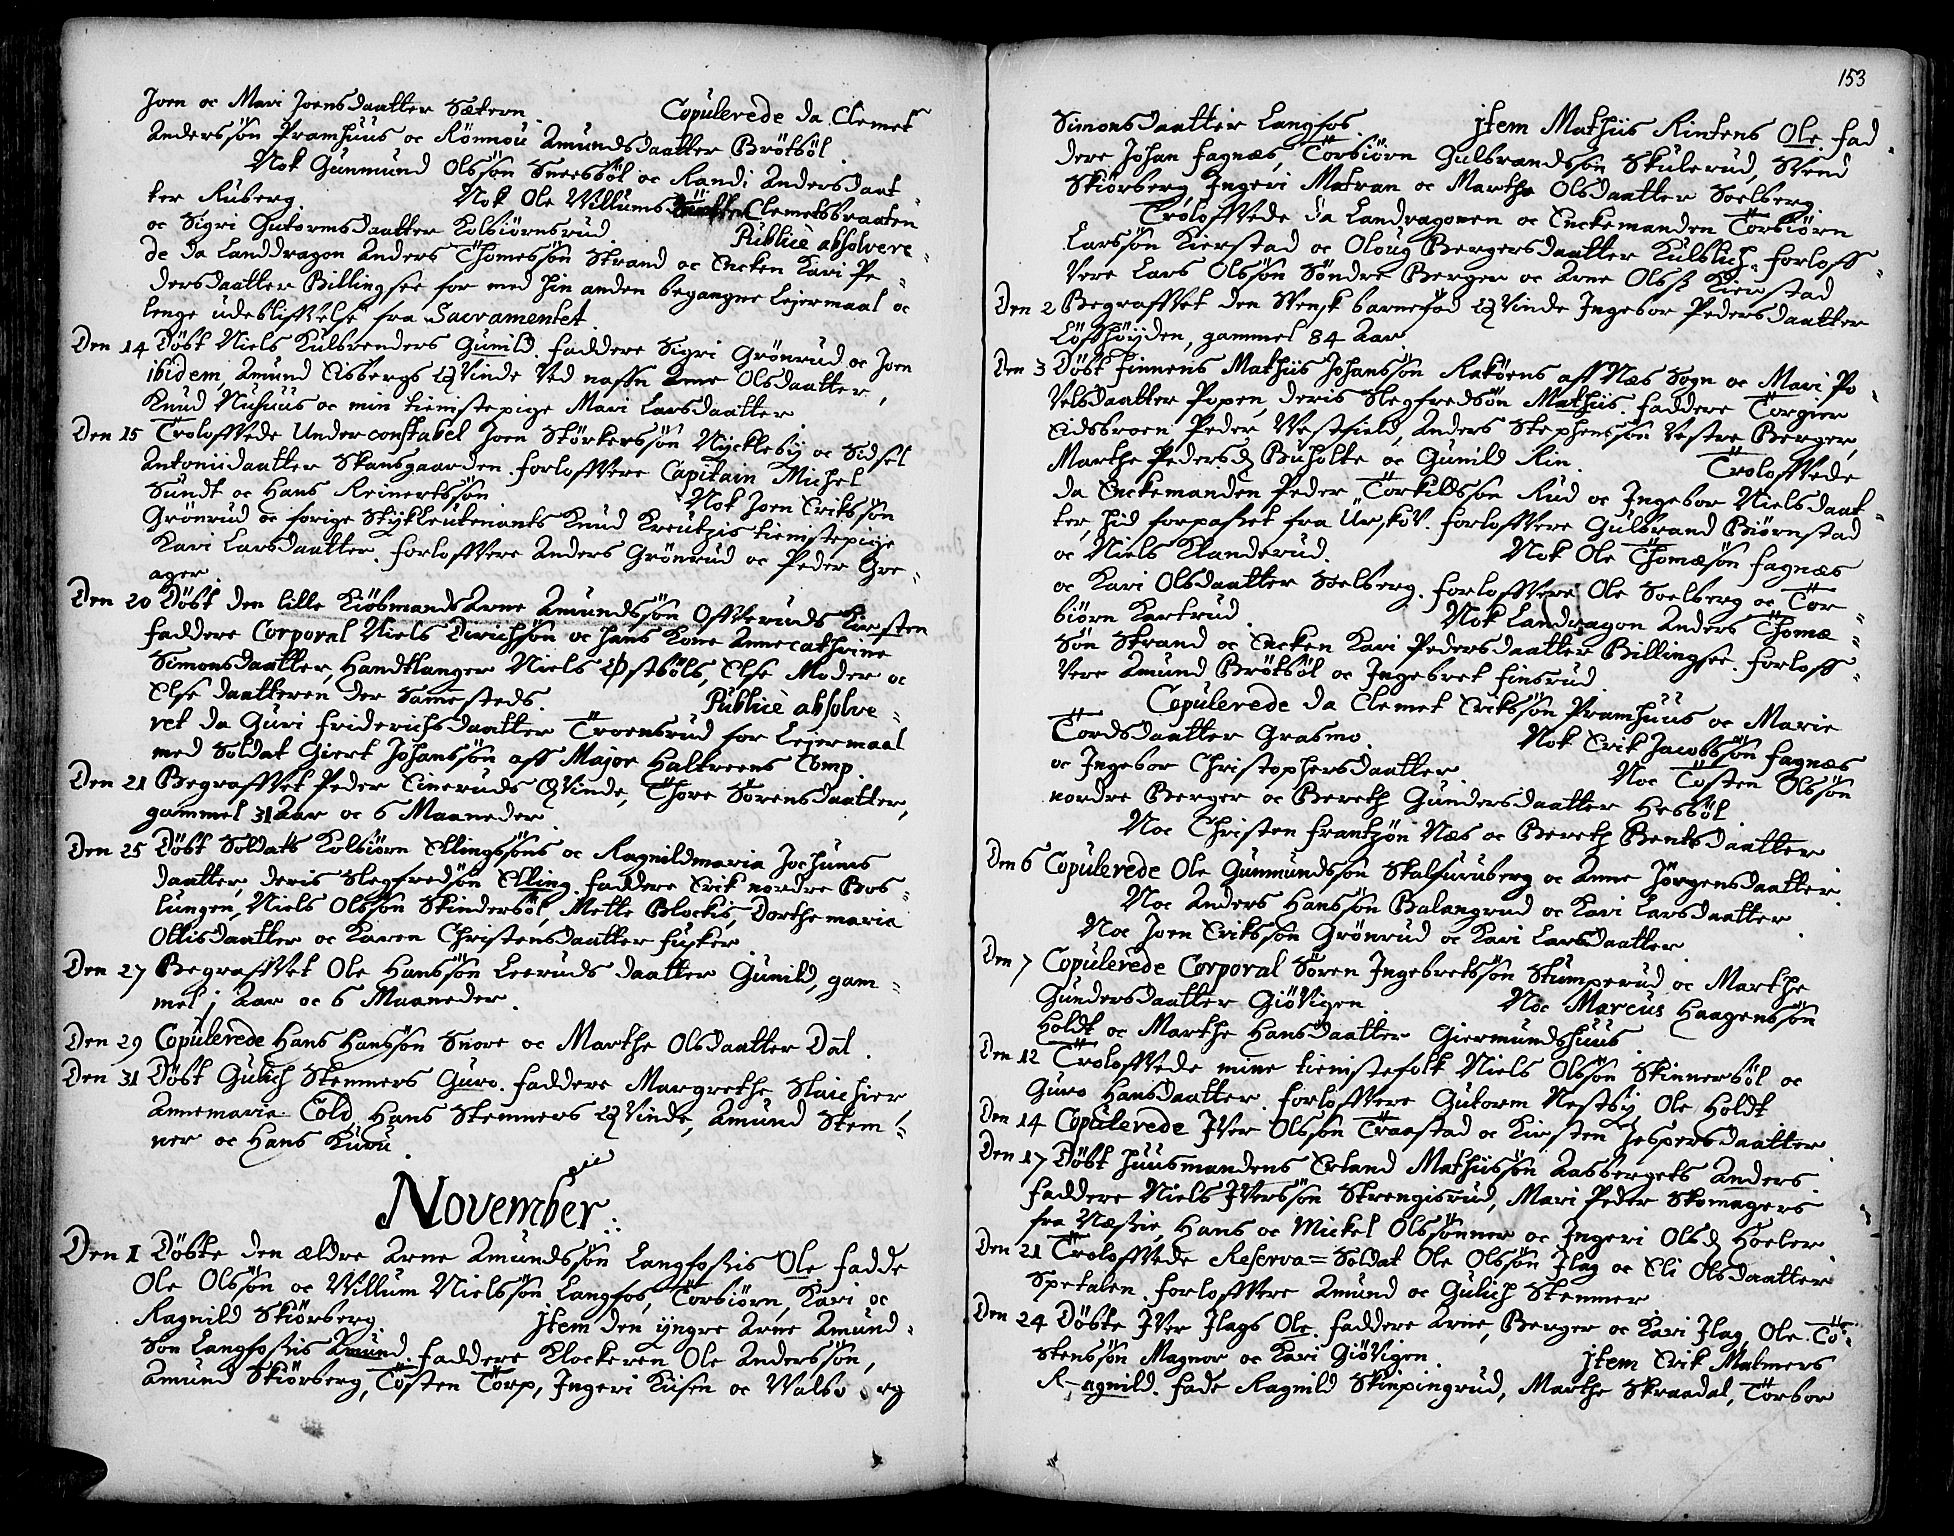 Joen oc Mari Joensdaatter Sætern. Copulerede da Clemet
Anderssøn Pramhuus oc Rönnou Amundsdaatter Brötsöl.
Nok Gunmund Olssøn Sneesböl oc Randi Andersdaat-
ter Ruberg. Nok Ole Willums Clemetsbraaten
oc Sigri Gutormsdaatter Kolbiörnsrud. Publicè absolvere-
de da Landdragon Anders Thomessøn Strand oc Encken Kari Pe-
dersdaatter Billingsee for med hin anden begangne Lejermaal oc
lenge udeblifvelse fra Sacramentet.
Den 14 Döbt Niels Kulbrenders Gunild. Faddere Sigri Grönrud oc Joen
ibidem, Amund Eisbergs Qvinde ved nafn Anne Olsdaatter,
Knud Nuhuus oc min tienistepige Mari Larsdaatter.
Den 15 Trolofvede Underconstabel Joen Störkerssøn Nycklebÿ oc Sidsel
Antoniidaatter Skansgaarden. Forlofvere Capitain Michel
Sundt oc Hans Reinertssøn. Nok Joen Erikssøn
Grönrud oc forige Stykleutenants Knud Kreutzis tienistepige
Kari Larsdaatter. Forlofvere Anders Grönrud oc Peder Gre-
ager.
Den 20 Döbt den lille Kiöbmands Arne Amundssøn Ofveruds Kirsten
Faddere Corporal Niels Dirichsøn oc hans Kone Annecathrine
Simonsdaatter, Handtlanger Niels Østböls, Else Moder oc
Else daatteren der samesteds. Publicè absolve-
ret da Guri Friderichsdaatter Troensrud for Lejermaal
med Soldat Giert Johanssøn aff Major Haltreens Comp.
Den 21 Begrafvet Peder Eineruds Qvinde, Thore Sörensdaatter,
gammel 31 Aar oc 6 Maaneder.
Den 25 Döbt Soldats Kolbiörn Ellingssøns oc Ragnildmaria Jochums
daatter, deris slegfredsøn Elling. Faddere Erik nordre Bos-
lungen, Niels Olssøn Skindersöl, Mette Blockis, Dorthemaria
Ottisdaatter oc Karen Christensdaatter Fusker.
Den 27 Begrafvet Ole Hanssøn Leeruds daatter Gunild, gam-
mel 1 Aar oc 6 Maaneder.
Den 29 Copulerede Hans Hanssøn Snore oc Marthe Olsdaatter Dal.
Den 31 Döbt Gulich Stemmers Guro. Faddere Margrethe Slaichier
Annemaria Cold, Hans Stemmers Qvinde, Amund Stem-
ner oc Hans Kuru.
November.
Den 1 Döbte den ældre Arne Amundssøn Langfossis Ole. Fadde
Ole Olssøn oc Willum Nielssøn Langfos, Torbiörn, Kari oc
Ragnild Skiörberg. Jtem den yngre Arne Amund-
søn Langfossis Amund. Faddere Klockeren Ole Anderssøn,
Amund Skiörberg, Tosten Torp, Ingeri Kiisen oc Walborg
153
Simonsdaatter Langfos. Jtem Mathiis Rintens Ole. Fad-
dere Johan Fagnæs, Torbiörn Gulbrandssøn Skulerud, Svend
Skiörberg Ingeri Matran oc Marthe Olsdaatter Soelberg.
Trolofvede da Landragonen oc Enckemanden Torbiörn
Larssøn Kierstad oc Oloug Bergersdaatter Kulblich. Forloff-
vere Lars Olssøn Söndre Berger oc Arne Olss: Kierstad
Den 2 Begrafvet den svensk barnefød Qvinde Ingebor Pedersdaatter
Löfthöyden, gammel 84 Aar.
Den 3 Döbt Finnens Mathiis Johanssøn Raköens aff Næs Sogn oc Mari Po-
velsdaatter Popen, deris slegfredsøn Mathiis. Faddere Torgier
Eidsbroen Peder Westfield, Anders Stephenssøn Vestre Berger,
Marthe Pedersd. Buholte oc Gunild Rin. Trolofvede
da Enckemanden Peder Torkildssøn Rud oc Ingebor Nielsdaat-
ter, hid forpasset fra Urskov. Forlofvere Gulbrand Biörnstad
oc Niels Klanderud. Nok Ole Thomæsøn Fagnæs
oc Kari Olsdaatter Soelberg. Forlofvere Ole Soelberg oc Tor-
biörn Kartrud. Nok Landragon Anders Thomæ-
søn Strand oc Encken Kari Pedersdaatter Billingsee. Forloff-
vere Amund Brötsöl oc Ingebret Finsrud.
Copulerede da Clemet Erikssøn Pramhuus oc Marie
Tordsdaatter Grasmo. Nok Erik Jacobssøn Fagnæs
oc Ingebor Christophersdaatter. Noc Tosten Olssøn
nordre Berger oc Bereth Gundersdaatter Hesböl.
Noc Christen Frantzøn Næs oc Bereth Bentsdaatter.
Den 6 Copulerede Ole Gunmundssøn Skalfuruberg oc Anne Jörgensdaatter.
Noc Anders Hanssøn Balangrud oc Kari Larsdaatter.
Noc Joen Erikssøn Grönrud oc Kari Larsdaatter.
Den 7 Copulerede Corporal Sören Ingebretssøn Stumperud oc Marthe
Gundersdaatter Giövigen. Noc Marcus Haagenssøn
Holdt oc Marthe Hansdaatter Giermundshuus.
Den 12 Trolofvede mine tienistefolk Niels Olssøn Skinnersöl oc
Guro Hansdaatter. Forlofvere Gutorm Nestbÿ, Ole Holdt
Den 14 Copulerede Iver Olssøn Traastad oc Kirsten Jespersdaatter.
Den 17 Döbt Huusmandens Erland Mathiissøn Aasbergets Anders.
Faddere Niels Iverssøn Skrengisrud, Mari Peder Skomagers
fra Næssie, Hans oc Mickel Olssønner oc Ingeri Olsd. Hoeler.
Den 21 Trolofvede Reserva=Soldat Ole Olssøn Ilag oc Eli Olsdaatter
Spetalen. Forlofvere Amund oc Gulich Stemmer
Den 24 Döbte Iver Ilags Ole. Faddere Arne, Berger oc Kari Ilag, Ole To-
stenssøn Magnor oc Kari Giövigen. Jtem Erik Matmers
Ragnild. Fadde Ragnild Skinpingrud, Marthe Skraadal, Torbor